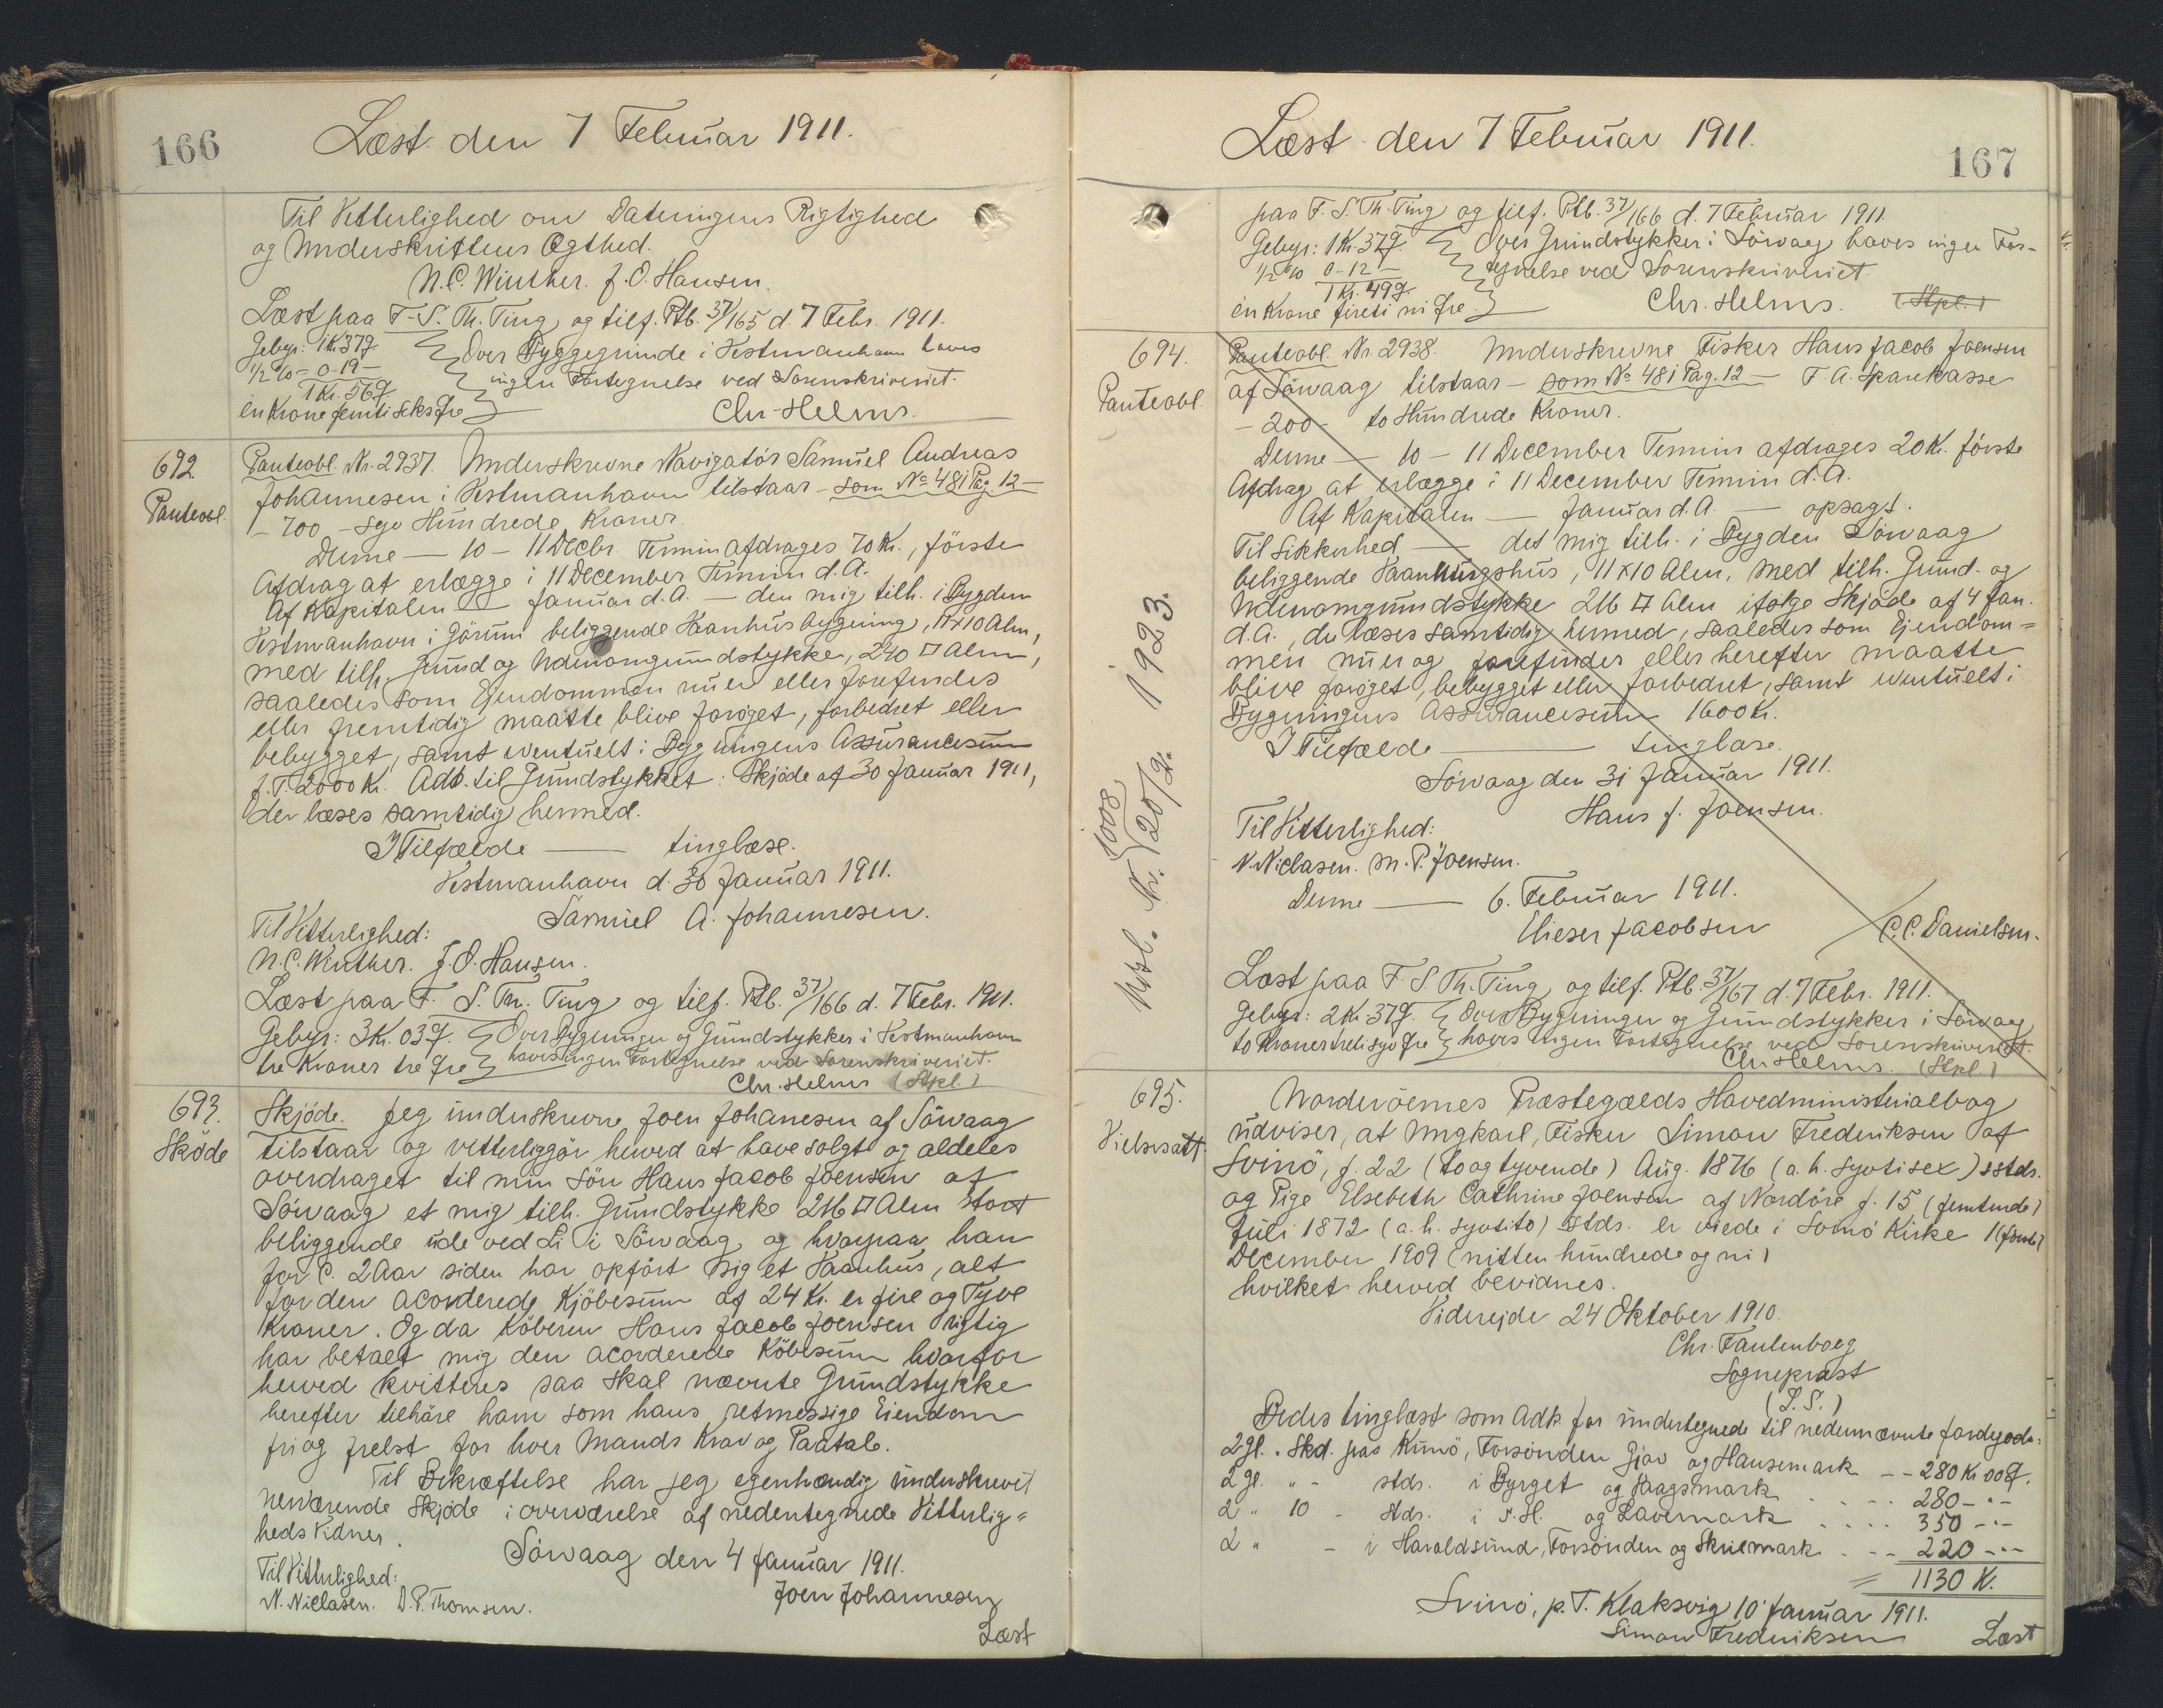 166
Læst den 7 Februar 1911.
Til Vitterlighed om Dateringens Rigtighed
og Underskriftens Ægthed.
N.C. Winther. J.O. Hansen.
Læst paa F. S. Th. Ting og tilf. Ptb. 37/165 d. 7 Febr. 1911.
Gebyr: 1 Kr 37 Ø Over Byggegrunde i Vestmanhavn haves
1/2 % - 0-19 - ingen Fortegnelse ved Sorenskriveriet.
1 Kr. 56 Ø
en Krone femti seks Øre Chr. Helms.
692. Panteobl. Nr. 2937. Underskrevne Navigatör Samuel Andreas
Panteobl. Johannesen i Vestmanhavn tilstaar - som No 48 i Pag. 12 -
- 700 - syv Hundrede Kroner.
Denne - 10 - 11 Decbr. Termin afdrages 70 Kr., förste
Afdrag at erlægge i 11 December Termin d. A.
Af Kapitalen - Januar d. A. - den mig tilh. i Bygden
Vestmanhavn i beliggende Vaanhus bygning, 11x10 Alen,
med tilh. Grund og Udenomgrundstykke, 240 □ Alen,
saaledes som Ejendommen nu er eller forefindes
eller fremtidig maatte blive forøget, forbedret eller
bebygget, samt eventuelt i Bygningens Assurancesum
p. T. 2000 Kr. Adk. til Grundstykket: Skjöde af 30 Januar 1911,
der læses samtidig hermed.
I Tilfælde - tinglæse.
Vestmanhavn d. 30 Januar 1911.
Samuel A. Johannesen.
Til Vitterlighed:
N.C. Winther. J.O. Hansen.
Læst paa F. S. Th. Ting og tilf. Ptb. 37/166 d. 7 Febr. 1911.
Gebyr: 3 Kr. 03 Ø. Over Bygninger og Grundstykker i Vestmanhavn
tre Kroner tre Øre haves ingen Fortegnelse ved Sorenskriveriet.
Chr. Helms (Stpl.)
693. Skjöde. Jeg underskrevne Joen Johanesen af Sörvaag
Sköde tilstaar og vetterliggör herved at have solgt og aldeles
overdraget til min Sön Hans Jacob Joensen af
Sörvaag et mig tilh. Grundstykke 216 □ Alen stort
beliggende ude ved Li i Sörvaag og hvorpaa han
for C. 2 Aar siden har opfört sig et Vaanhus, alt
for den acorderede Kjöbesum af 24 Kr. er fire og Tyve
Kroner. Og da Köberen Hans Jacob Joensen rigtig
har betalt mig den acorderede Köbesum hvorfor
herved kvitteres saa skal nævnte Grundstykke
herefter tilhöre ham som hans retmessige Eiendom
fri og frelst for hver Mands Krav og Paatale.
Til Bekræftelse har jeg egenhændig underskrevet
nerværende Skjöde i overværelse af nedentegnede Vitterlig=
heds Vidner.
Sörvaag den 4 Januar 1911.
Til Vitterlighed:
N. Niclasen. D.P. Thomsen. Joen Johannesen
Læst
Læst den 7 Februar 1911.
167
paa F. S. Th. Ting og tilf. Ptb. 37/166 d. 7 Februar 1911.
Gebyr: 1 Kr. 37 Ø. Over Grundstykker i Sörvaag haves ingen For-
1/2 % 0-12 - tegnelse ved Sorenskriveriet.
1 Kr. 49 Ø.
en Krone firti ni Øre Chr. Helms. (Stpl.)
694. Panteobl. Nr. 2938. Underskrevne Fisker Hans Jacob Joensen
Panteobl af Sörvaag tilstaar - som No 48 i Pag. 12 - F. A. Sparekasse
- 200 - to Hundrede Kroner.
Denne - 10 - 11 December Termin afdrages 20 Kr. förste
Afdrag at erlægge i 11 December Termin d. A.
Af Kapitalen - Januar d. A. - opsagt.
Til Sikkerhed - det mig tilh. i Bygden Sörvaag
beliggende Vaaningshus, 11x10 Alen, med tilh. Grund- og
Udenomgrundstykke 216 □ Alen ifølge Skjöde af 4 Jan.
d. A., der læses samtidig hermed, saaledes som Ejendom=
men nu er og forefindes eller herefter maatte
blive forøget, bebygget eller forbedret, samt eventuelt i
Bygningens Assurancesum 1600 Kr.
I Tilfælde - tinglæse.
Sörvaag den 31 Januar 1911.
Hans J. Joensen.
Til Vitterlighed:
N. Niclasen. M. P. Joensen.
Denne - 6. Februar 1911.
Elieser Jacobsen / C.C. Danielsen.
Læst paa F. S. Th. Ting og tilf. Ptb. 37/167 d. 7 Febr. 1911.
Gebyr: 2 Kr. 37 Ø. Over Bygninger og Grundstykker i Sörvaag
to Kroner treti syv Øre haves ingen Fortegnelse ved Sorenskriveriet.
Chr. Helms. (Stpl.)
Nr. 1008 20/2. 1923.
695. Norderöernes Præstegælds Hovedministerialbog
Vielsesatt. udviser, at Ungkarl, Fisker Simon Frederiksen af
Svinö, f. 22 (to og tyvende) Aug. 1876 (a. h. syvtisex) sstds.
og Pige Elsebeth Cathrine Joensen af Nordöre f. 15 (femtende)
Juli 1872 (a. h. syvtito) sstds. er viede i Svinö Kirke 1 (förste)
December 1909 (nitten hundrede og ni)
hvilket herved bevidnes.
Viderejde 24 Oktober 1910.
Chr. Faulenborg
Sognepræst
(L. S.)
Bedes tinglæst som Adk. for undertegnede til nedennævnte Jordegods:
2 gl. Skd. paa Kunö, Forsonden Gjov og Hansemark -- 280 Kr 00 Ø.
2 gl. " - stds. i Byrget og Haagsmark .... 280 - " -
2 " 10 - stds. i S. H. og Lavemark .... 350 - " -
2 " - i Haraldsund, Forsönden og Skriemark -- 220 - " -
= 1130 K.
Svinö, p. T. Klaksvig 10 Januar 1911.
Simon Frederiksen
Læst